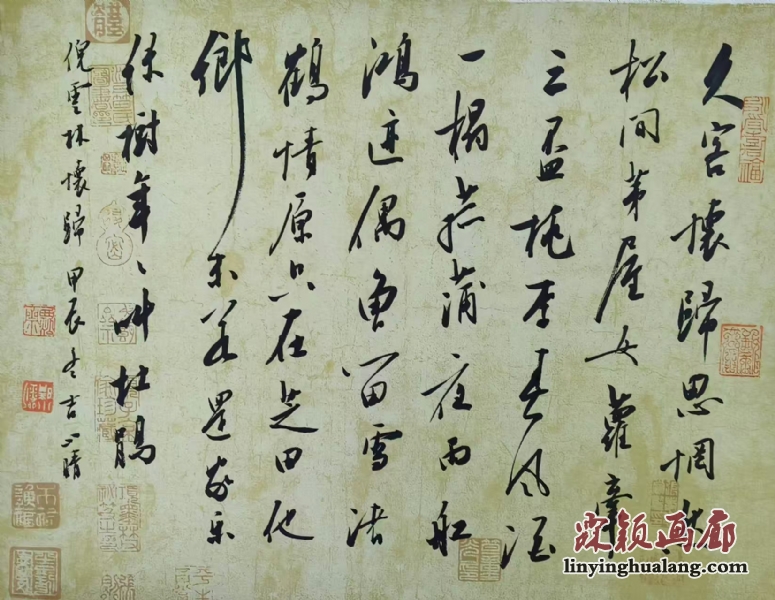 久客懷歸思惘然
松間茅屋女蘿牽
三盃桃李春風酒
一榻菰蒲夜雨船
鴻迹偶曾留雪渚
鶴情原只在芝田他
鄉未若還家樂
綠樹年々叫杜鵑
倪雲林懷歸 甲辰冬吉
颖画廊
linyinghualang.com